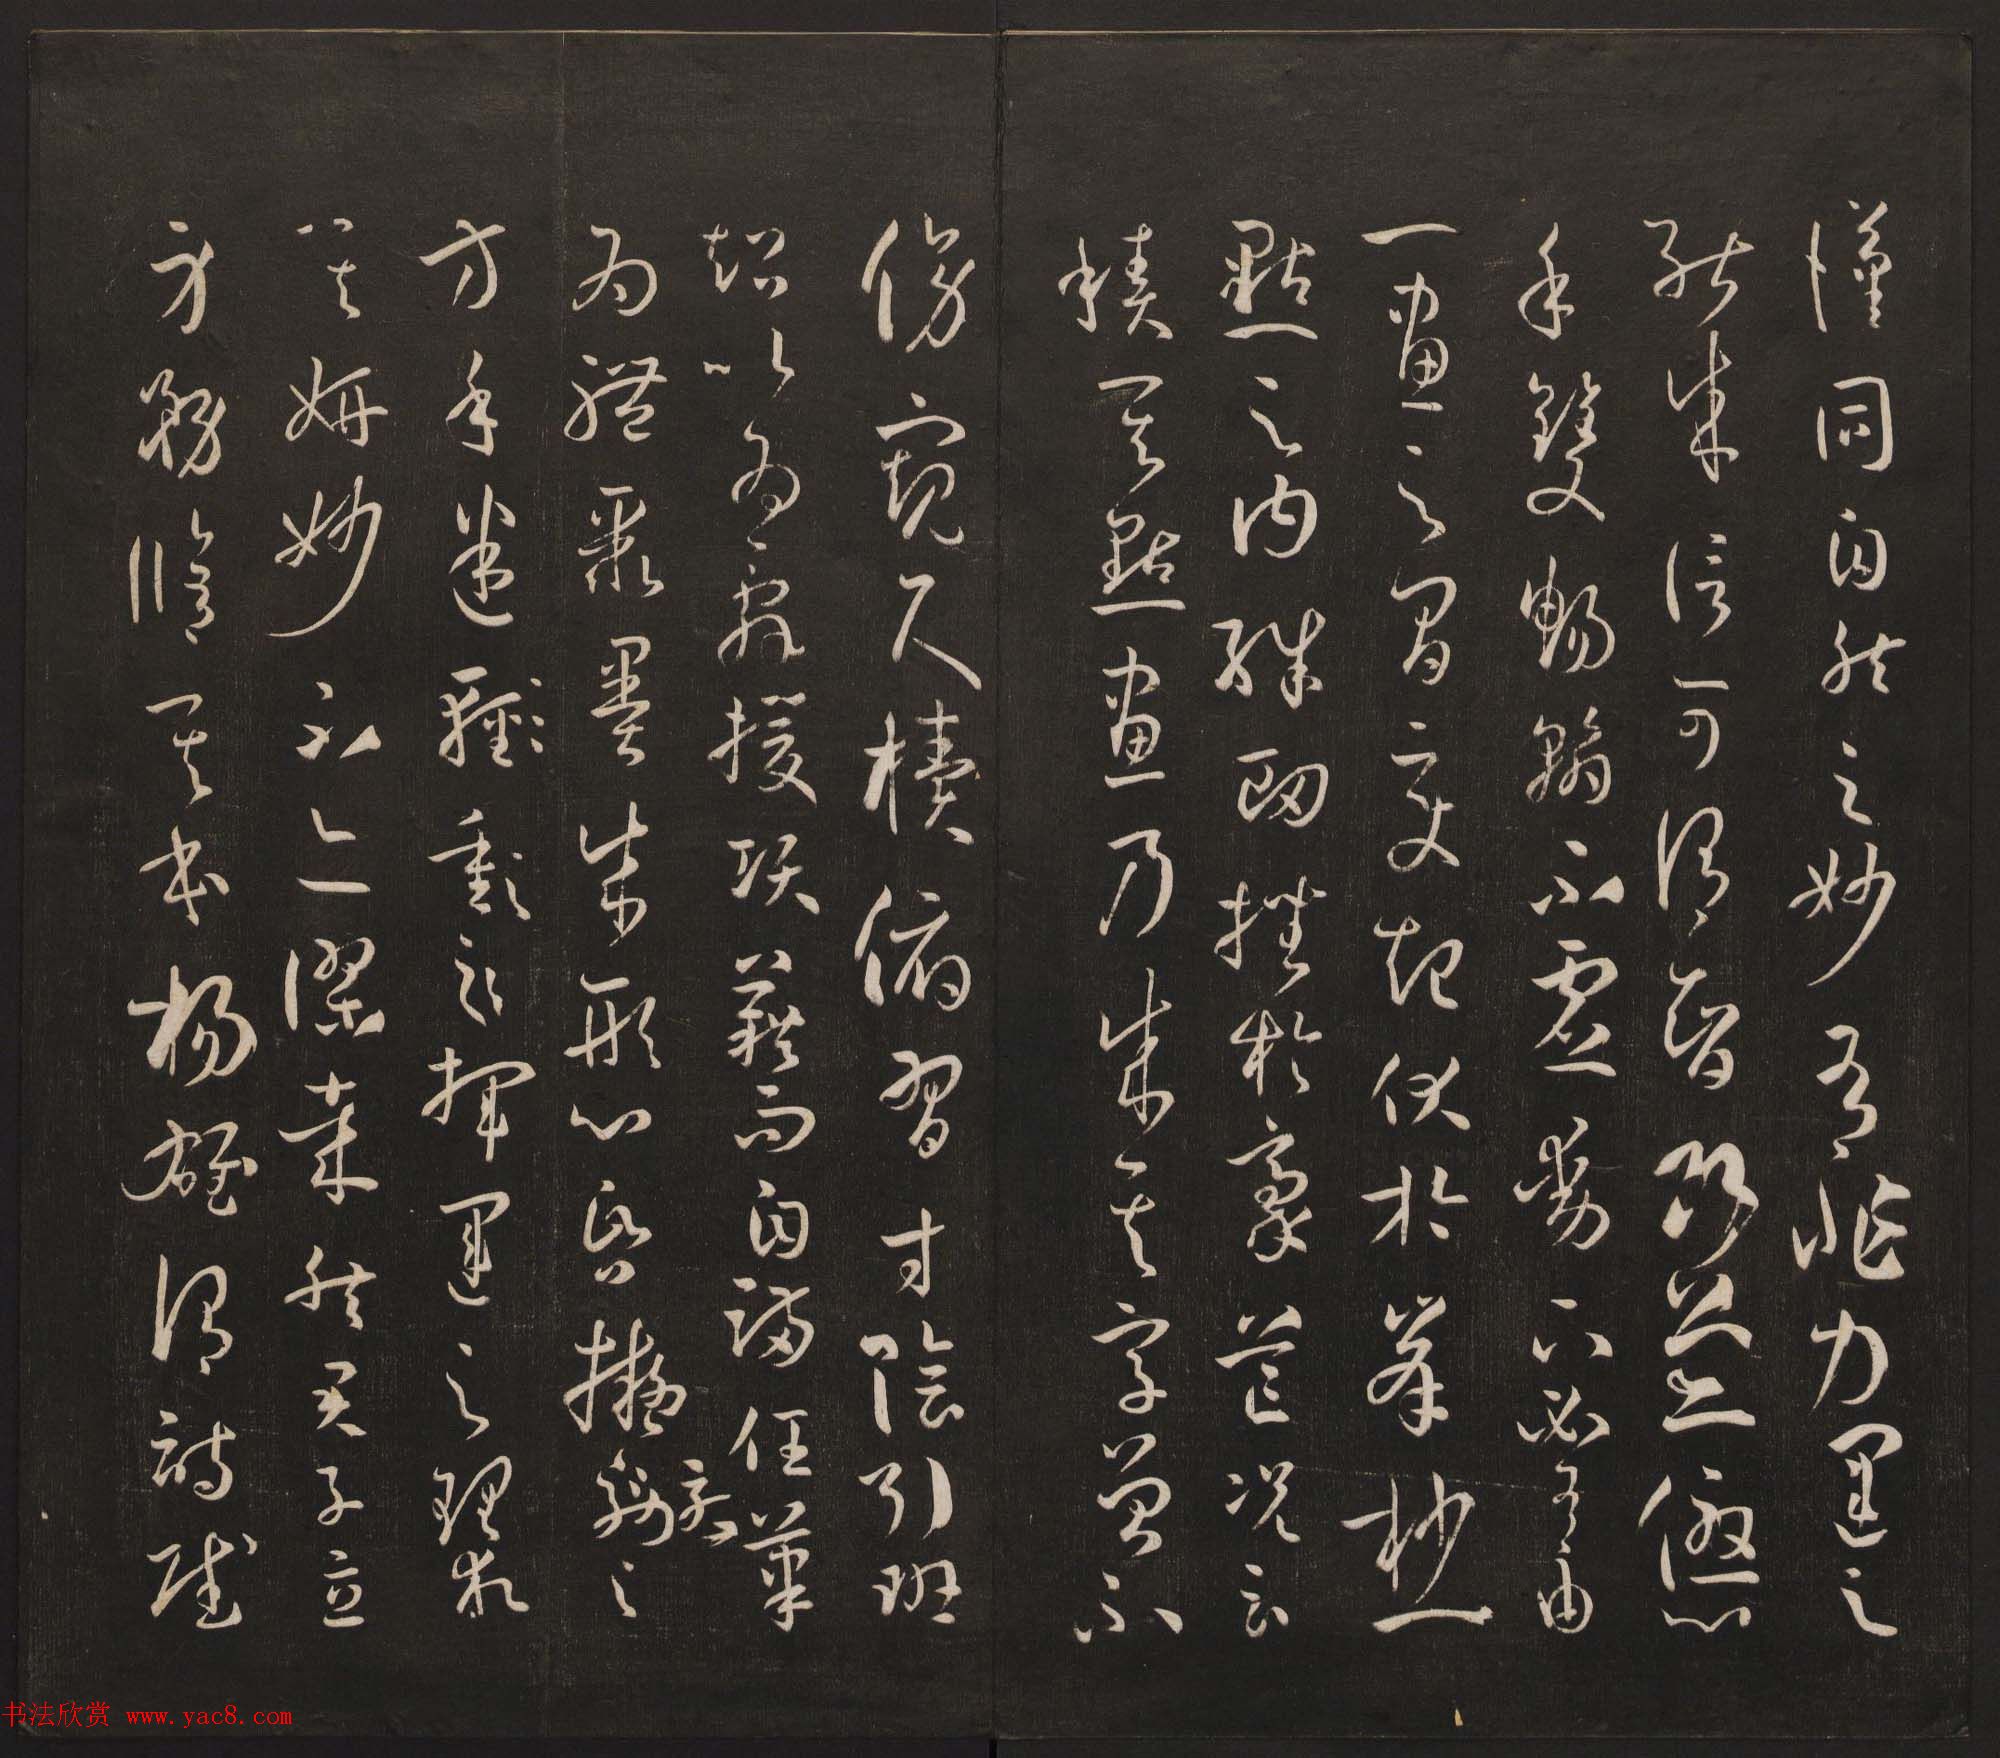 漢同自然之妙有非力運之
能成信可謂智巧兼優心
手雙暢翰不虛動下必有由
一畫之間變起伏於峯杪一
點之內殊衄挫於豪芒況云
積其點畫乃成其字曾不
傍窺尺牘俯習寸陰引班
超以為辭援項籍而自滿任筆
為體聚墨成形心昏擬效之
方手迷輕重之揮運之理求
其妍妙不亦謬哉然君子立
身務脩其本楊雄謂詩賦
书法欣赏 www.yac8.com